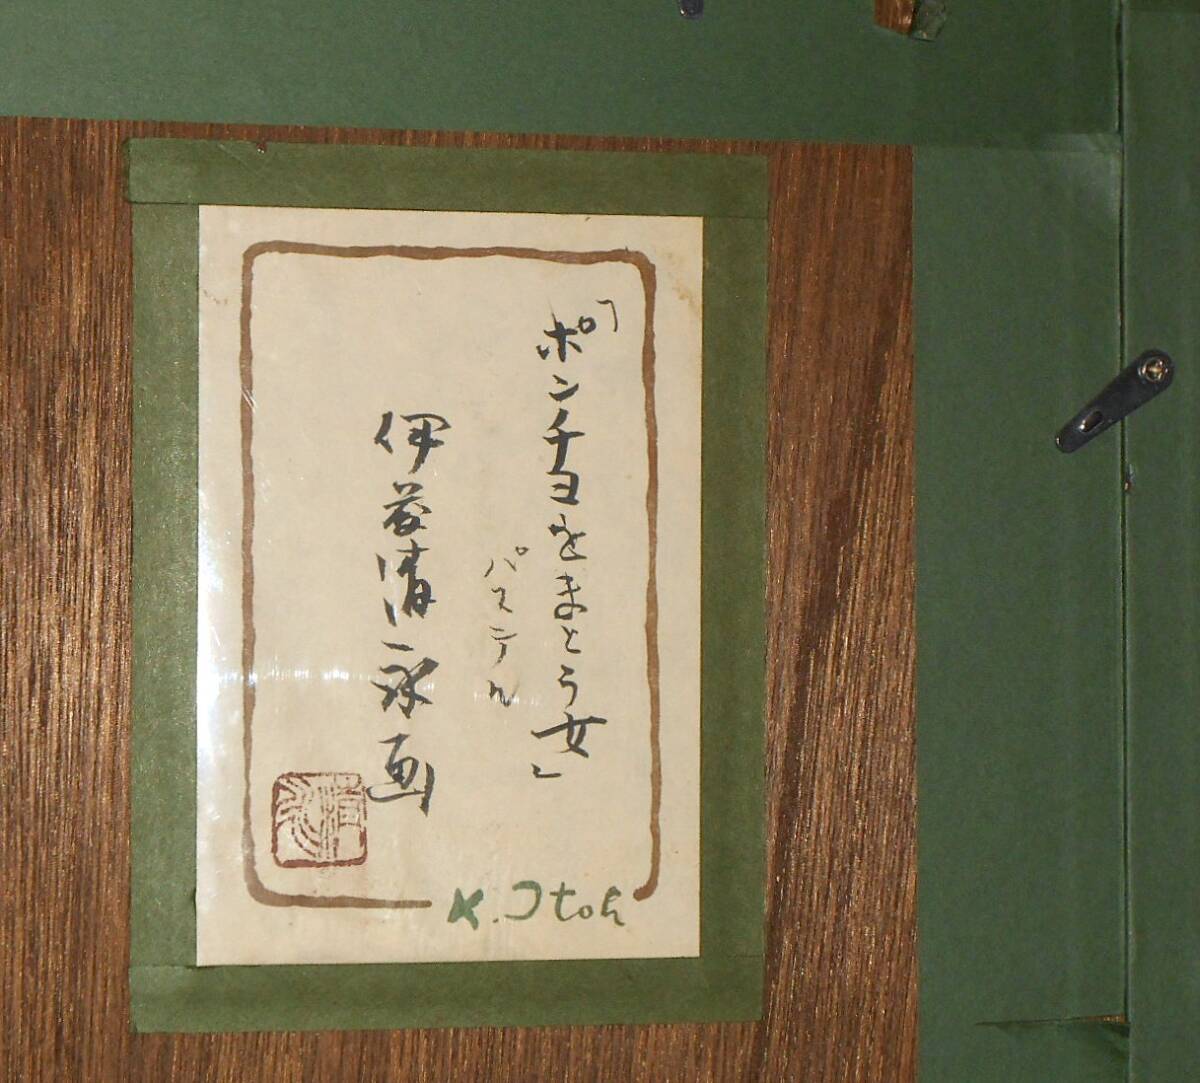 「ポンチョをまとう女」
パステル
伊藤清永画
清永
K. Itoh